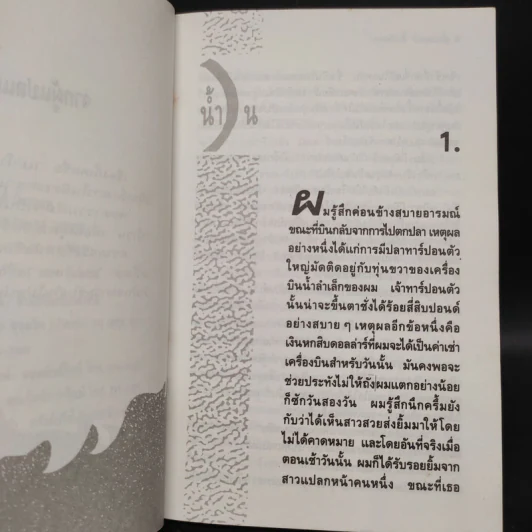 น้ำ
น
1.
ผมรู้สึกค่อนข้างสบายอารมณ์
ขณะที่บินกลับจากการไปตกปลา เหตุผล
อย่างหนึ่งได้แก่การมีปลาทาร์ปอนตัว
ใหญ่มัดติดอยู่กับทุ่นขวาของเครื่อง
บินน้ำลำเล็กของผม เจ้าทาร์ปอนตัว
นั้นน่าจะขึ้นตาชั่งได้ร้อยสี่สิบปอนด์
อย่างสบาย ๆ เหตุผลอีกข้อหนึ่งคือ
เงินหกสิบดอลล่าร์ที่ผมจะได้เป็นค่าเช่า
เครื่องบินสำหรับวันนั้น มันคงพอจะ
ช่วยประทังไม่ให้ถังผมแตกอย่างน้อย
ก็ซักวันสองวัน ผมรู้สึกนึกครึ้มยัง
กับว่าได้เห็นสาวสวยส่งยิ้มมาให้โดย
ไม่ได้คาดหมาย และโดยอันที่จริงเมื่อ
ตอนเช้าวันนั้น ผมก็ได้รับรอยยิ้มจาก
สาวแปลกหน้าคนหนึ่ง ขณะที่เธอ